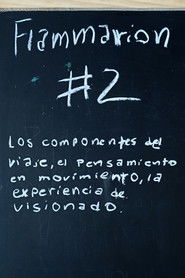 Flammarion
#2
Los componentes del
viaje, el pensamiento
en movimiento, la
experiencia de
visionado.